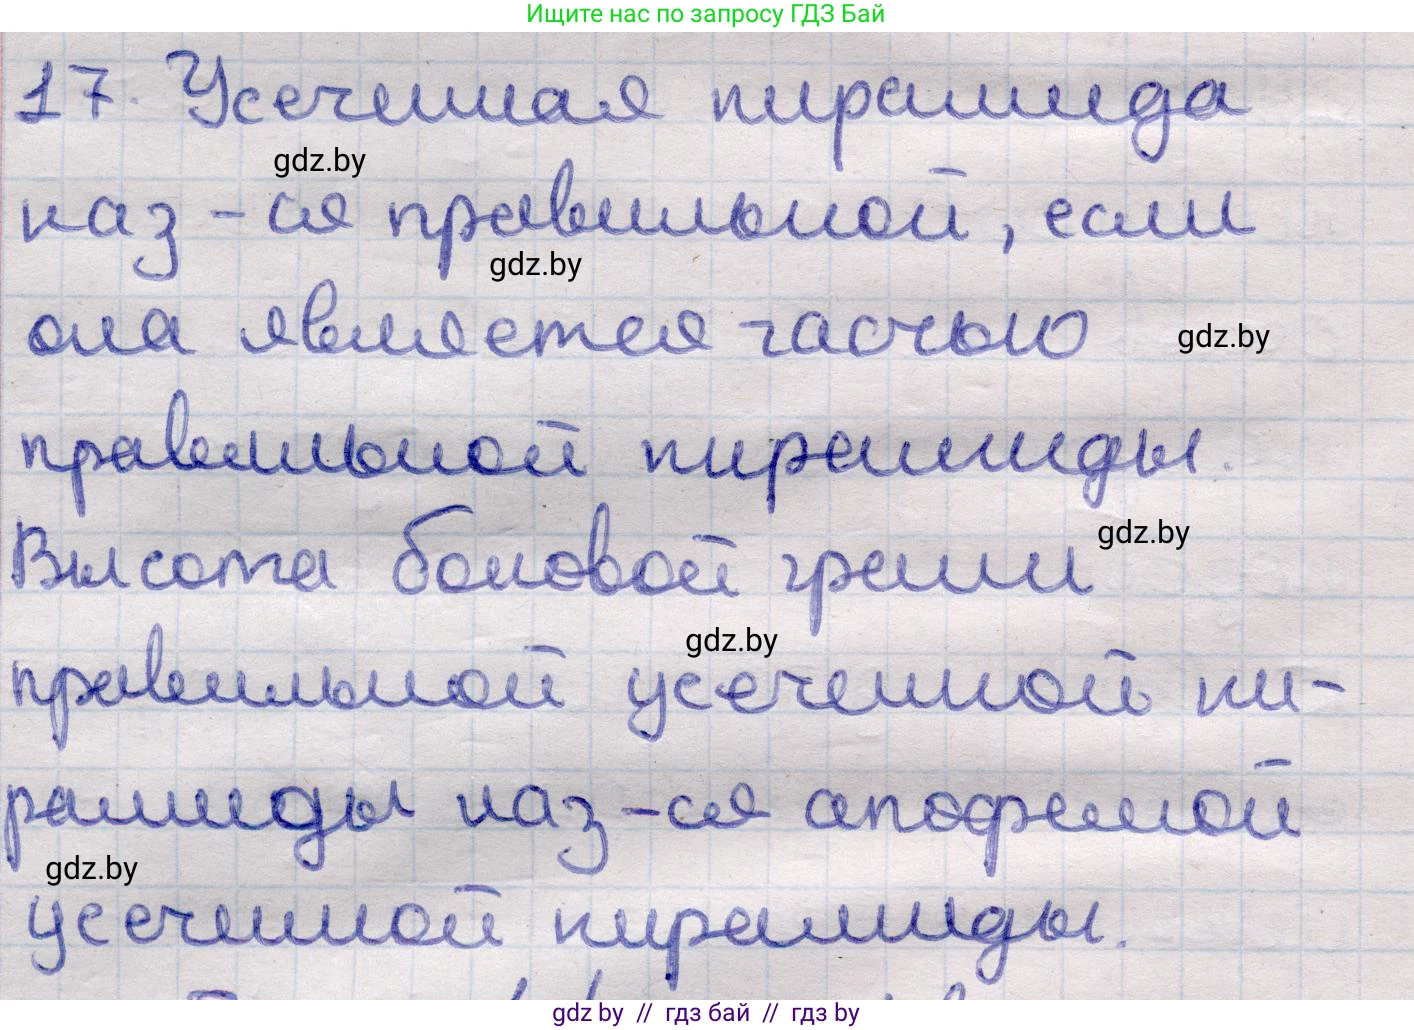 Ищите нас по запросу ГДЗ Бай
17. Усеченная пирамида
gdz.by
наз-ся правильной, если
gdz.by
она является часчью
gdz.by
правильной пирамиды.
gdz.by
Высота боковой грани
gdz.by
правильной усеченной пи-
рамиды наз-ся апофемой
gdz.by
усеченной пирамиды.
gdz.by // гдз бай // гдз by